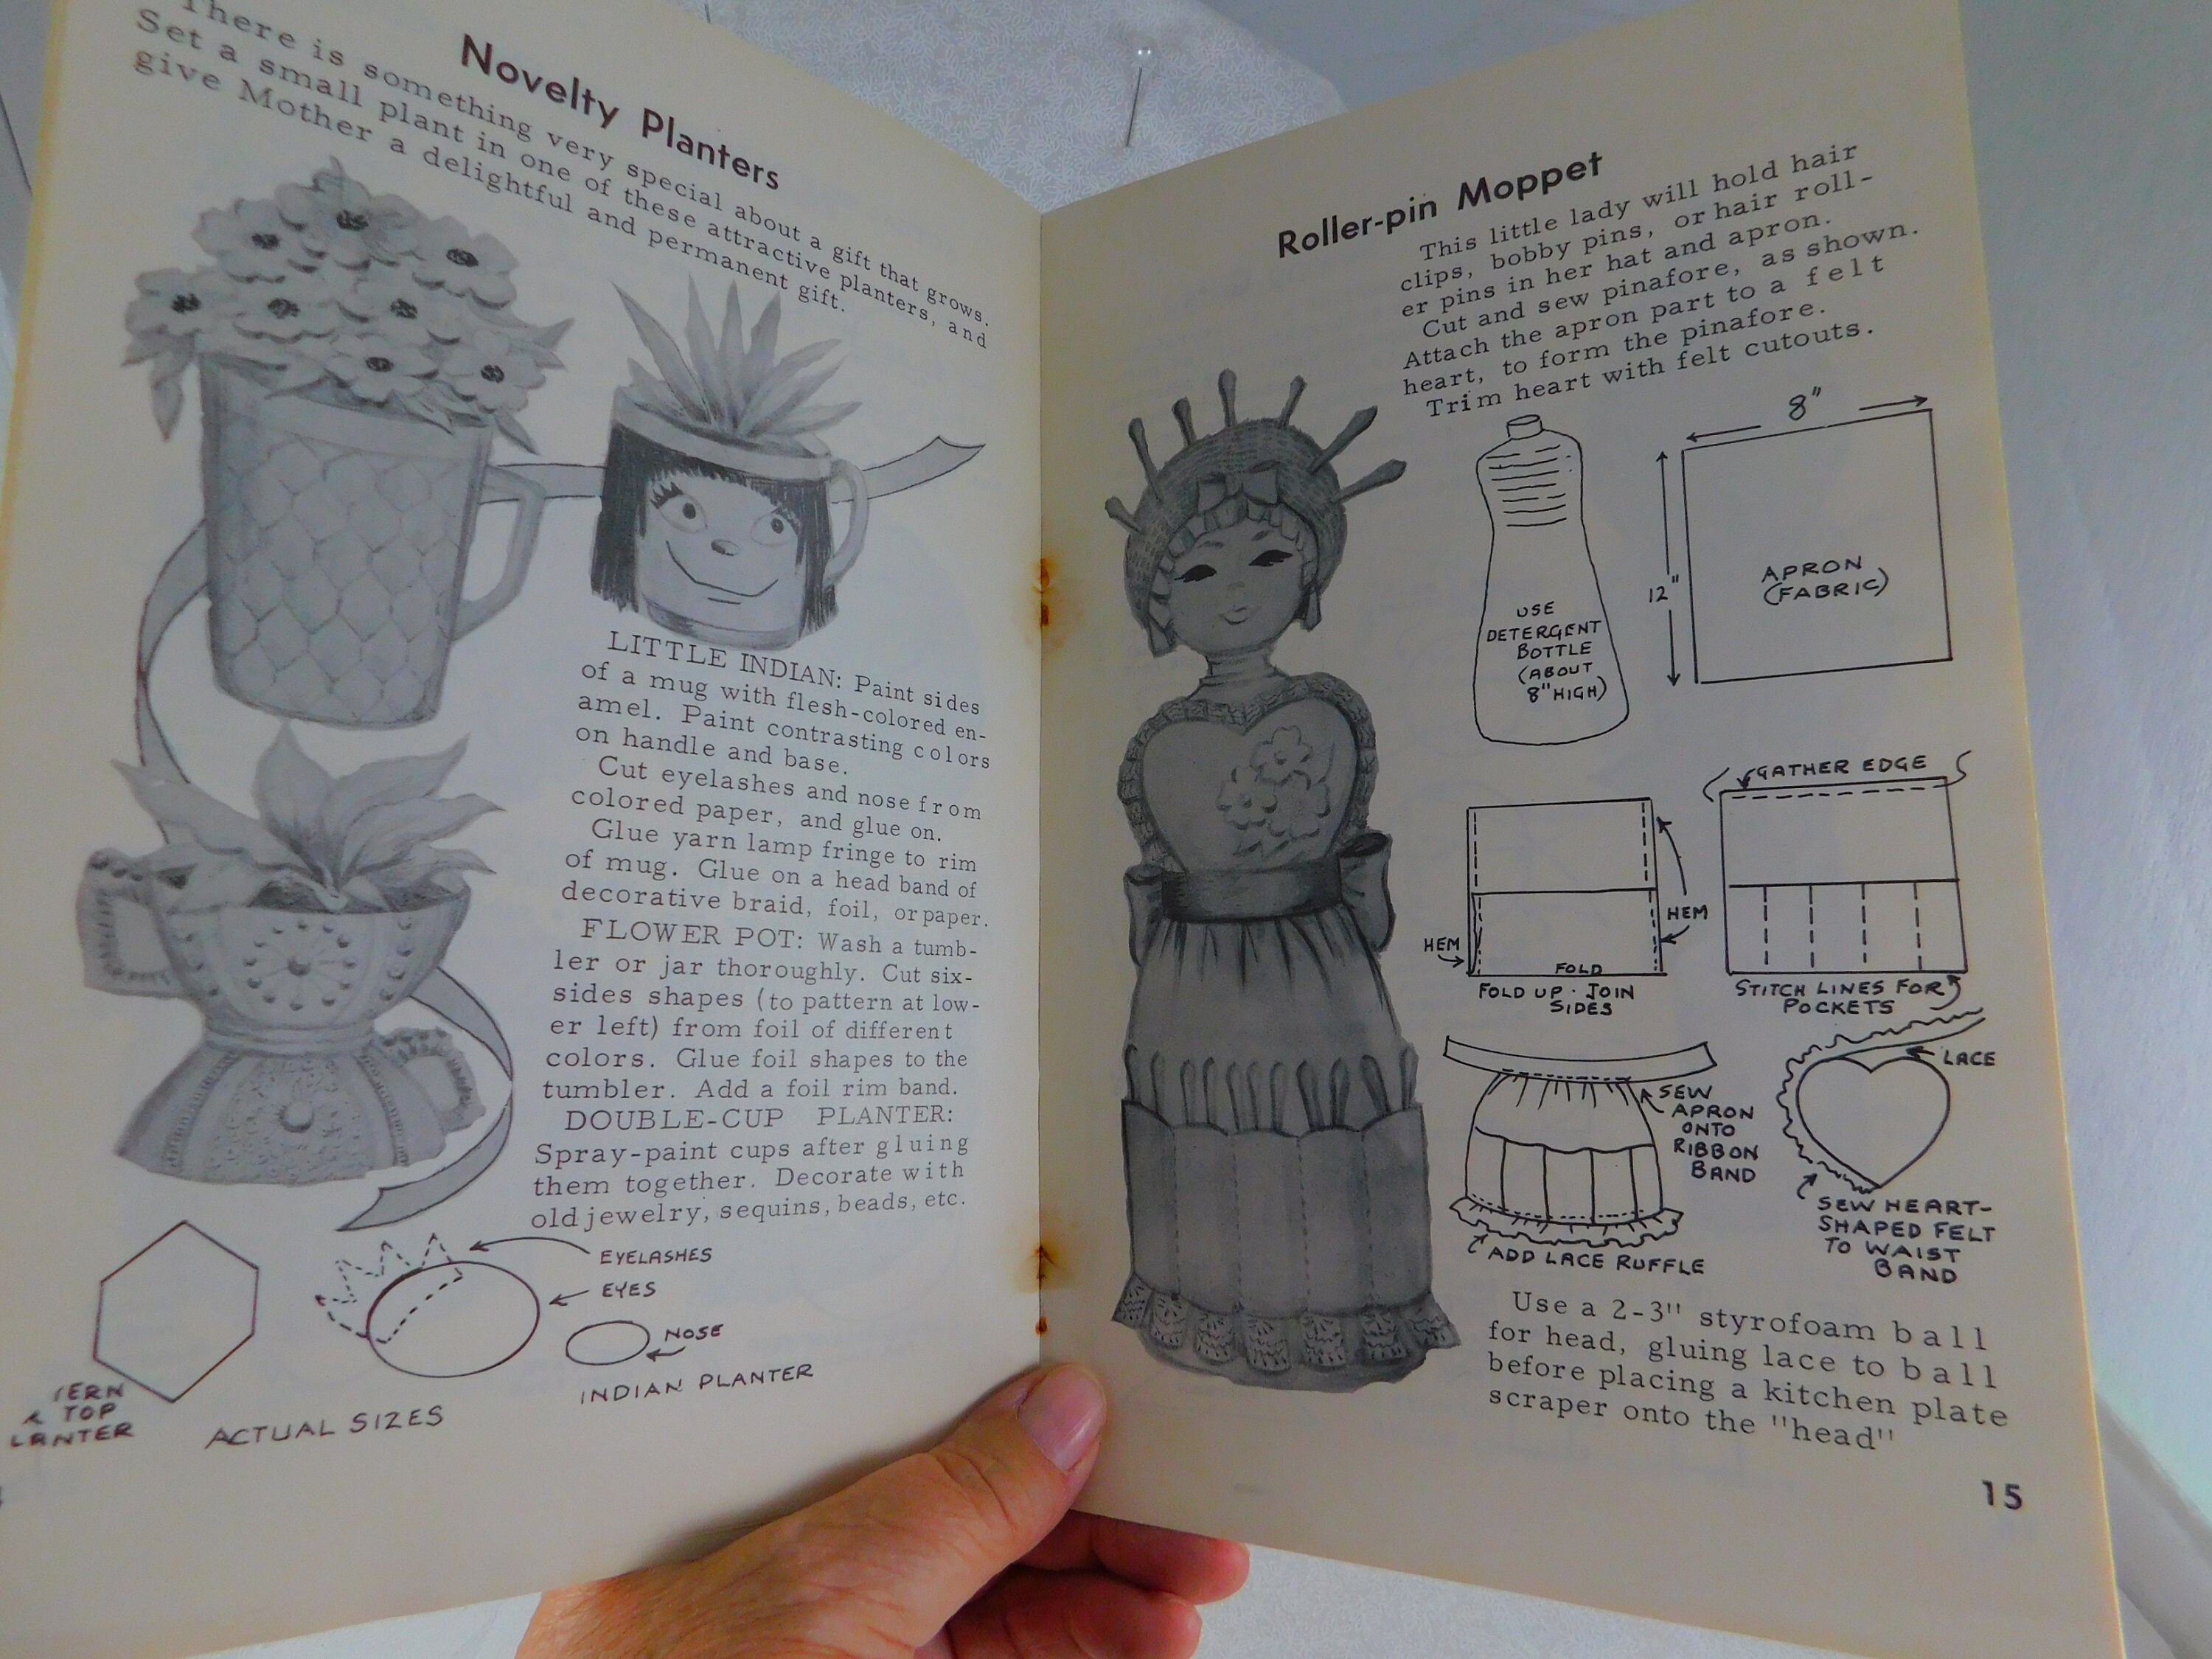 Novelty Planters
There is something very special about a gift that grows.
Set a small plant in one of these attractive planters, and
give Mother a delightful and permanent gift.
LITTLE INDIAN: Paint sides
of a mug with flesh-colored en-
amel. Paint contrasting colors
on handle and base.
Cut eyelashes and nose from
colored paper, and glue on.
Glue yarn lamp fringe to rim
of mug. Glue on a head band of
decorative braid, foil, or paper.
FLOWER POT: Wash a tumb-
ler or jar thoroughly. Cut six-
sides shapes (to pattern at low-
er left) from foil of different
colors. Glue foil shapes to the
tumbler. Add a foil rim band.
DOUBLE-CUP PLANTER:
Spray-paint cups after gluing
them together. Decorate with
old jewelry, sequins, beads, etc.
EYELASHES
EYES
NOSE
INDIAN PLANTER
TERN
& TOP
LANTER
ACTUAL SIZES
Roller-pin Moppet
This little lady will hold hair
clips, bobby pins, or hair roll-
er pins in her hat and apron.
Cut and sew pinafore, as shown.
Attach the apron part to a felt
heart, to form the pinafore.
Trim heart with felt cutouts.
8"
12"
APRON
(FABRIC)
USE
DETERGENT
BOTTLE
(ABOUT
8" HIGH)
GATHER EDGE
HEM
HEM
FOLD
FOLD UP · JOIN
SIDES
STITCH LINES FOR
POCKETS
SEW
APRON
ONTO
RIBBON
BAND
ADD LACE RUFFLE
LACE
SEW HEART-
SHAPED FELT
TO WAIST
BAND
Use a 2-3" styrofoam ball
for head, gluing lace to ball
before placing a kitchen plate
scraper onto the "head"
15